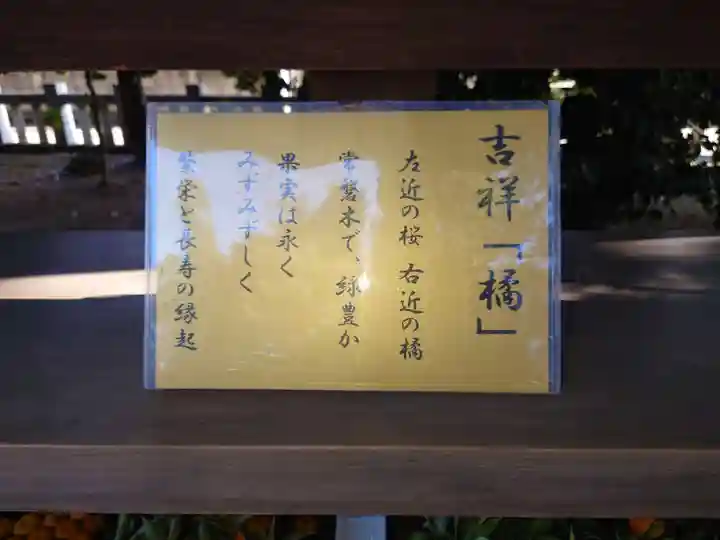 吉祥「橘」
左近の桜 右近の橘
常磐木で、緑豊か
果実は永く
みずみずしく
繁栄と長寿の縁起